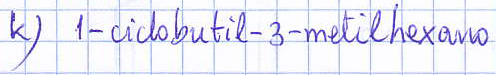 k) 1-ciclobutil-3-metilhexano